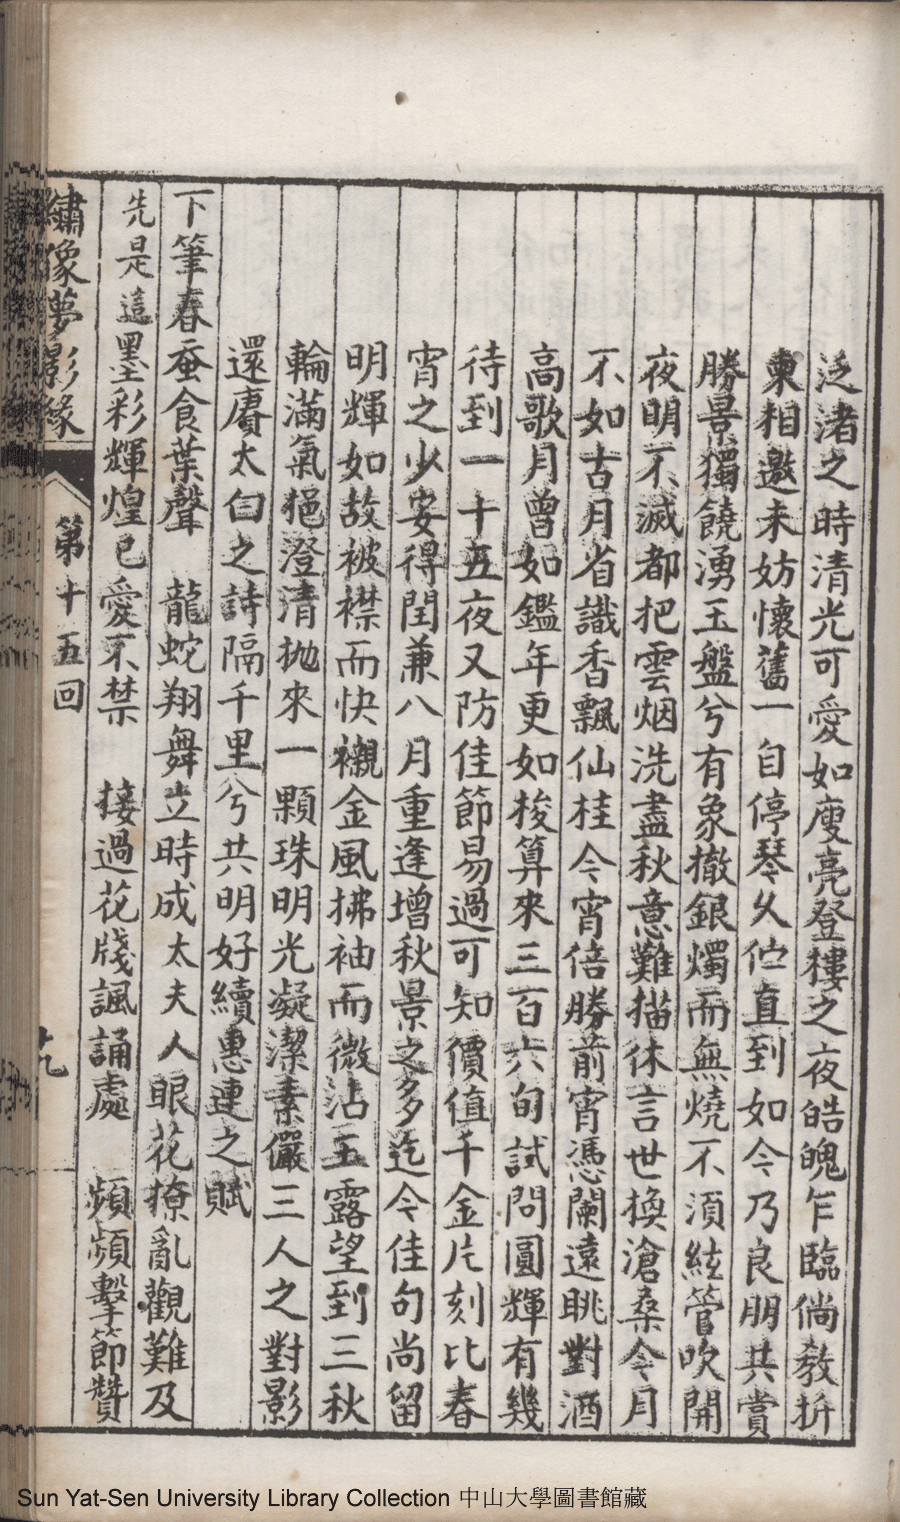 泛渚之時清光可愛如庾亮登樓之夜皓魄乍臨倘教折
柬相邀未妨懷舊一自停琴久伫直到如今乃良朋共賞
勝景獨饒湧玉盤兮有象撤銀燭而無燒不須絃管吹開
夜明不滅都把雲烟洗盡秋意難描休言世換滄桑今月
不如古月省識香飄仙桂今宵倍勝前宵憑闌遠眺對酒
高歌月曾如鑑年更如梭算來三百六旬試問圓輝有幾
待到一十五夜又防佳節易過可知價值千金片刻比春
宵之少安得閏兼八月重逢增秋景之多迄今佳句尚留
明輝如故被襟而快襯金風拂袖而微沾玉露望到三秋
輪滿氣挹澄清拋來一顆珠明光凝潔素儼三人之對影
還賡太白之詩隔千里兮共明好續惠連之賦
下筆春蚕食葉聲 龍蛇翔舞立時成太夫人眼花撩亂觀難及
先是這墨彩輝煌已愛不禁 接過花牋諷誦處 頻頻擊節贊
繡像夢影緣 第十五回
Sun Yat-Sen University Library Collection 中山大學圖書館藏